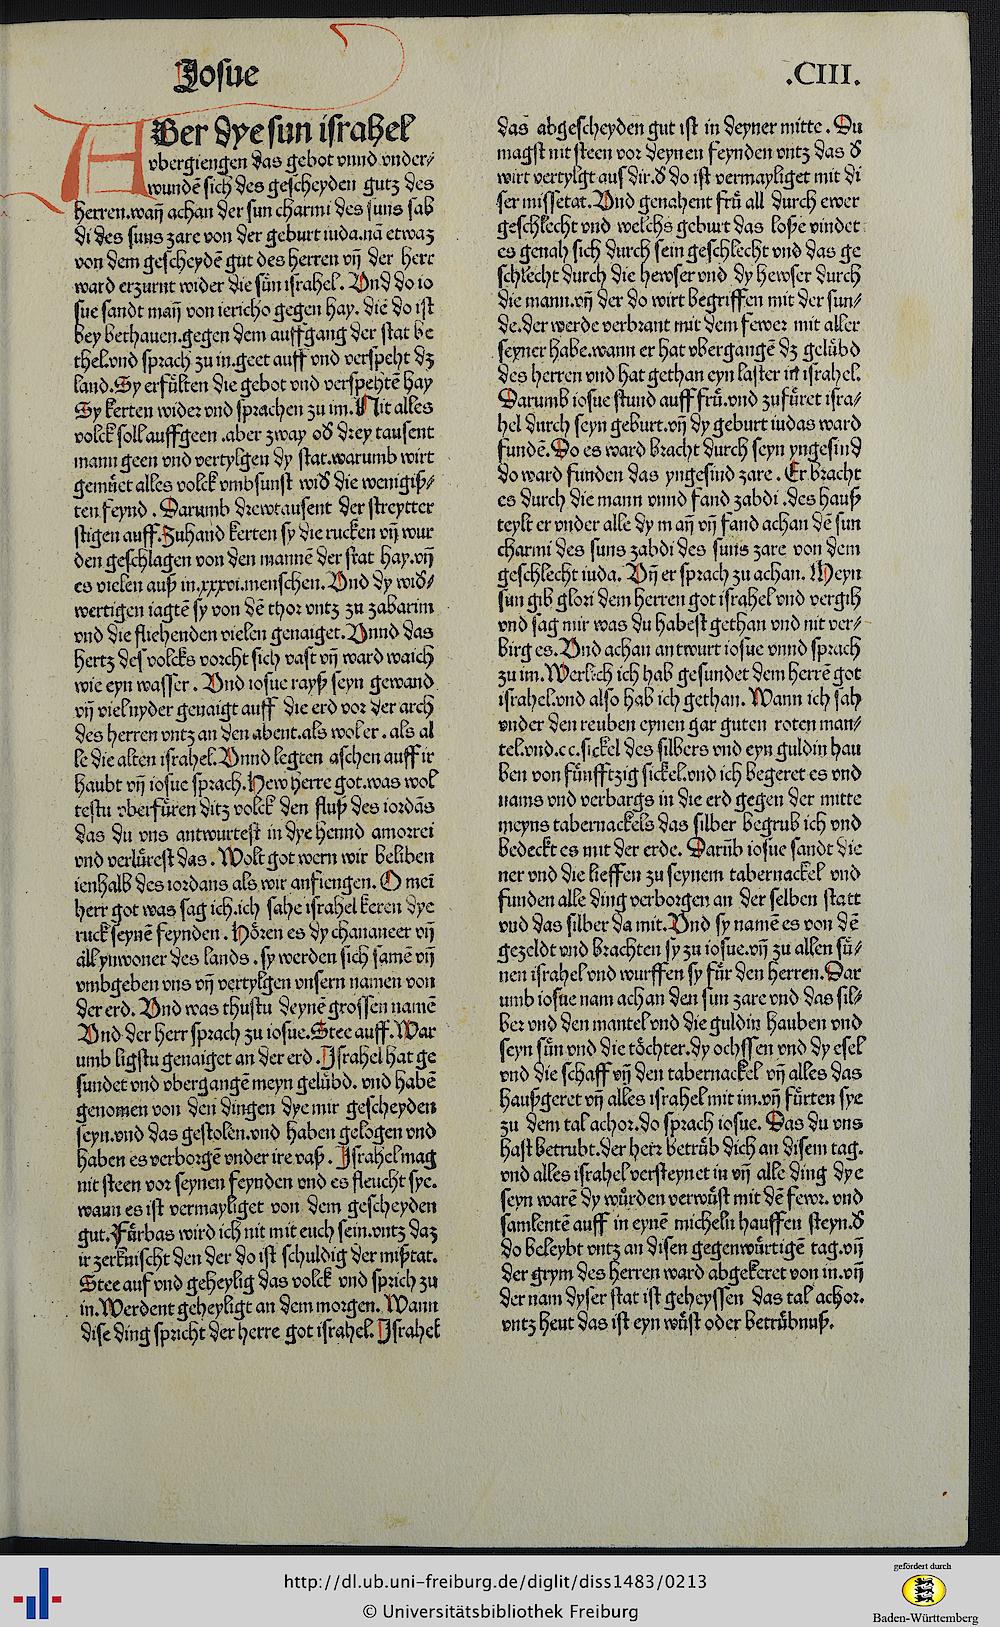 Josue
.CIII.
ABer dye sun israhel
vbergiengen das gebot vnnd vnder⸗
wundē sich des gescheyden gutz des
herren.wañ achan der sun charmi des suns sab
di des suns zare von der geburt iuda.nā etwaz
von dem gescheydē gut des herren vñ der herr
ward erzurnt wider die sün israhel. Vnd do io
sue sandt mañ von iericho gegen hay. die do ist
bey bethauen.gegen dem auffgang der stat be
thel.vnd sprach zu in.geet auff vnd verspeht dz
land.Sy erfülten die gebot vnd verspehtē hay
Sy kerten wider vnd sprachen zu im.Nit alles
volck soll auffgeen .aber zway od̕ drey tausent
mann geen vnd vertylgen dy stat.warumb wirt
gemüet alles volck vmbsunst wid̕ die wenigiß⸗
ten feynd . Darumb drewtausent der streytter
stigen auff.Zuhand kerten sy die rucken vñ wur
den geschlagen von den mannē der stat hay.vñ
es vielen auß in.xxxvi.menschen. Vnd dy wid̕⸗
wertigen iagtē sy von dē thor vntz zu zabarim
vnd die fliehenden vielen genaiget.Vnnd das
hertz des volcks vorcht sich vast vñ ward waich
wie eyn wasser . Vnd iosue rayß seyn gewand
vñ viel nyder genaigt auff die erd vor der arch
des herren vntz an den abent.als wol er . als al
le die alten israhel.Vnnd legten aschen auff ir
haubt vñ iosue sprach.Hew herre got.was wol
testu vberfüren ditz volck den fluß des iordās
das du vns antwurtest in dye hennd amorrei
vnd verlürest das . Wolt got wern wir beliben
ienhalb des iordans als wir anfiengen. O mei
herr got was sag ich.ich sahe israhel keren dye
ruck seynē feynden . Hören es dy chananeer vñ
all ynwoner des lands . sy werden sich samē vñ
vmbgeben vns vñ vertylgen vnsern namen von
der erd. Vnd was thustu deynē grossen namē
Vnd der herr sprach zu iosue.Stee auff.War
umb ligstu genaiget an der erd .Israhel hat ge
sundet vnd vbergangē meyn gelübd. vnd habē
genomen von den dingen dye mir gescheyden
seyn.vnd das gestolen.vnd haben gelogen vnd
haben es verborgē vnder ire vaß . Israhel mag
nit steen vor seynen feynden vnd es fleucht sye.
wann es ist vermayliget von dem gescheyden
gut.Fürbas wird ich nit mit euch sein.vntz daz
ir zerknischt den der do ist schuldig der mißtat.
Stee auf vnd geheylig das volck vnd sprich zu
in.Werdent geheyligt an dem morgen. Wann
dise ding spricht der herre got israhel.Israhel
das abgescheyden gut ist in deyner mitte . Du
magst nit steen vor deynen feynden vntz das d̕
wirt vertylgt aus dir.d̕ do ist vermayliget mit di
ser missetat.Vnd genahent frü all durch ewer
geschlecht vnd welchs geburt das loße vindet
es genah sich durch sein geschlecht vnd das ge
schlecht durch die hewser vnd dy hewser durch
die mann.vñ der do wirt begriffen mit der sun⸗
de.der werde verbrant mit dem fewer mit aller
seyner habe.wann er hat vbergangē dz gelübd
des herren vnd hat gethan eyn laster in israhel.
Darumb iosue stund auff frü.vnd zufüret isra⸗
hel durch seyn geburt.vñ dy geburt iudas ward
fundē.Do es ward bracht durch seyn yngesind
do ward funden das yngesind zare . Er bracht
es durch die mann vnnd fand zabdi .des hauß
teylt er vnder alle dy mañ vñ fand achan dē sun
charmi des suns zabdi des suns zare von dem
geschlecht iuda. Vñ er sprach zu achan. Meyn
sun gib glori dem herren got israhel vnd vergih
vnd sag mir was du habest gethan vnd nit ver⸗
birg es.Vnd achan antwurt iosue vnnd sprach
zu im.Werlich ich hab gesundet dem herrē got
israhel.vnd also hab ich gethan. Wann ich sah
vnder den reuben eynen gar guten roten man⸗
tel.vnd.cc.sickel des silbers vnd eyn guldin hau
ben von fünfftzig sickel.vnd ich begeret es vnd
nams vnd verbargs in die erd gegen der mitte
meyns tabernackels das silber begrub ich vnd
bedeckt es mit der erde. Darūb iosue sandt die
ner vnd die lieffen zu seynem tabernackel vnd
funden alle ding verborgen an der selben statt
vnd das silber da mit.Vnd sy namē es von dē
gezeldt vnd brachten sy zu iosue.vñ zu allen sü⸗
nen israhel vnd wurffen sy für den herren.Dar
umb iosue nam achan den sun zare vnd das sil⸗
ber vnd den mantel vnd die guldin hauben vnd
seyn sün vnd die töchter.dy ochssen vnd dy esel
vnd die schaff vñ den tabernackel vñ alles das
haußgeret vñ alles israhel mit im.vñ fürten sye
zu dem tal achor.do sprach iosue. Das du vns
hast betrubt.der herr betrüb dich an disem tag.
vnd alles israhel versteynet in vñ alle ding dye
seyn warē dy würden verwüst mit dē fewr. vnd
samlentē auff in eynē micheln hauffen steyn.d̕
do beleybt vntz an disen gegenwürtigē tag.vñ
der grym des herren ward abgekeret von in.vñ
der nam dyser stat ist geheyssen das tal achor.
vntz heut das ist eyn wüst oder betrübnuß.
http://dl.ub.uni-freiburg.de/diglit/diss1483/0213
© Universitätsbibliothek Freiburg
gefördert durch
Baden-Württemberg